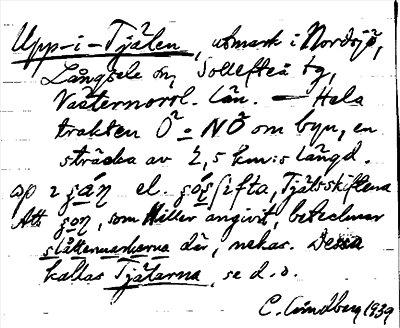 Upp-i-Tjälen, utmark i Nordsjö,
Långsele sn, Sollefteå tg,
Västernorrl. län. — Hela
trakten Ö o NÖ om byn, en
sträcka av 2,5 km:s längd.
el. Tjälsskiftena
Att som Hiller angivit, betecknar
slåttermarkerna där, nekas. Dessa
kallas Tjälarna, se d. o.
C. Lindberg 1939